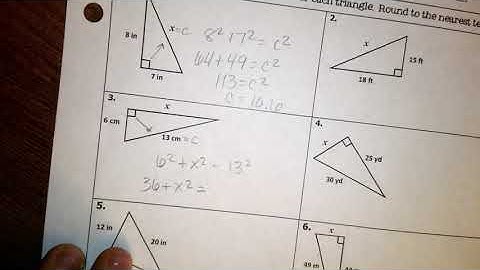 each triangle. Round to the nearest te
8 in
x=c
7 in
8²+7²=c²
64+49=c²
113=c²
c=10.6
2.
x
15 ft
18 ft
3.
x
6 cm
13 cm=c
6²+x²=13²
36+x²=
4.
x
25 yd
30 yd
5.
12 in
20 in
6.
x
49 m